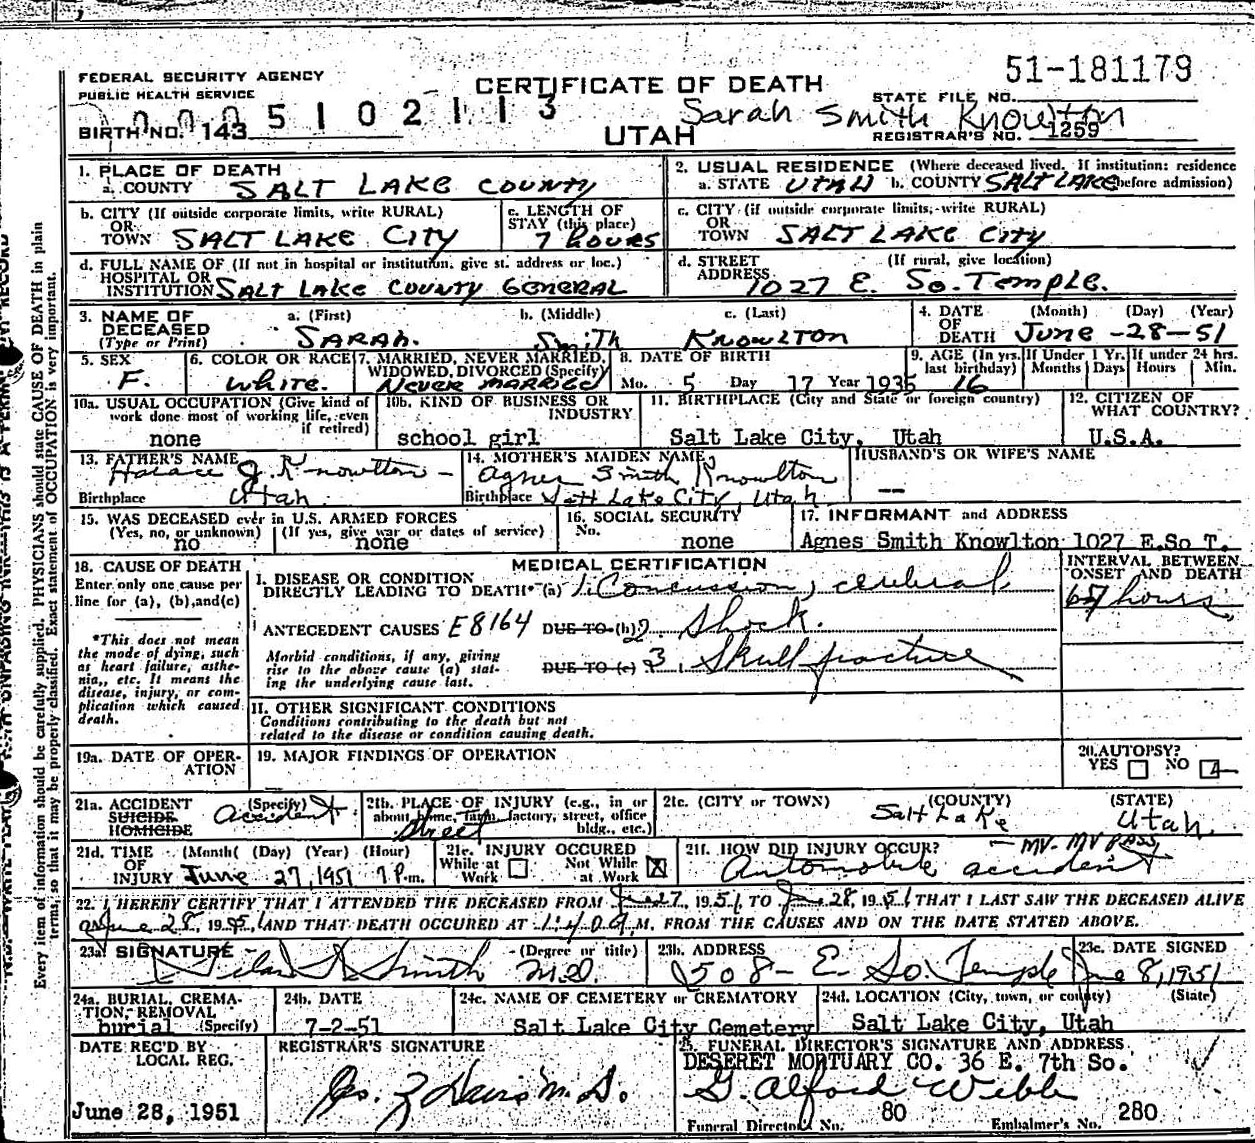 51-181179
FEDERAL SECURITY AGENCY
PUBLIC HEALTH SERVICE
CERTIFICATE OF DEATH
STATE FILE NO.
5102113 Sarah Smith Knowlton
BIRTH NO. 143
UTAH
REGISTRAR'S NO. 1259
1. PLACE OF DEATH
a. COUNTY SALT LAKE COUNTY
2. USUAL RESIDENCE (Where deceased lived. If institution: residence before admission)
a. STATE UTAH b. COUNTY SALT LAKE
b. CITY (If outside corporate limits, write RURAL)
OR
TOWN SALT LAKE CITY
c. LENGTH OF
STAY (this place)
7 hours
c. CITY (if outside corporate limits, write RURAL)
OR
TOWN SALT LAKE CITY
d. FULL NAME OF (If not in hospital or institution, give st. address or loc.)
HOSPITAL OR
INSTITUTION SALT LAKE COUNTY GENERAL
d. STREET (If rural, give location)
ADDRESS 1027 E. So. Temple.
3. NAME OF DECEASED
(Type or Print)
a. (First) b. (Middle) c. (Last)
SARAH. Smith KNOWLTON
4. DATE OF DEATH (Month) (Day) (Year)
June -28-51
5. SEX
F.
6. COLOR OR RACE
White.
7. MARRIED, NEVER MARRIED, WIDOWED, DIVORCED (Specify)
Never married
8. DATE OF BIRTH
Mo. 5 Day 17 Year 1935
9. AGE (In yrs. last birthday)
16
If Under 1 Yr. Months Days
If under 24 hrs. Hours Min.
10a. USUAL OCCUPATION (Give kind of work done most of working life, even if retired)
none
10b. KIND OF BUSINESS OR INDUSTRY
school girl
11. BIRTHPLACE (City and State or foreign country)
Salt Lake City, Utah
12. CITIZEN OF WHAT COUNTRY?
U.S.A.
13. FATHER'S NAME
Horace J. Knowlton
Birthplace Utah
14. MOTHER'S MAIDEN NAME
Agnes Smith Knowlton
Birthplace Salt Lake City, Utah
HUSBAND'S OR WIFE'S NAME
--
15. WAS DECEASED ever in U.S. ARMED FORCES
(Yes, no, or unknown) (If yes, give war or dates of service)
no none
16. SOCIAL SECURITY
No. none
17. INFORMANT and ADDRESS
Agnes Smith Knowlton 1027 E.So T.
18. CAUSE OF DEATH
Enter only one cause per
line for (a), (b), and (c)
*This does not mean
the mode of dying, such
as heart failure, asthe-
nia, etc. It means the
disease, injury, or com-
plication which caused
death.
MEDICAL CERTIFICATION
I. DISEASE OR CONDITION
DIRECTLY LEADING TO DEATH* (a) 1. Concussion, cerebral
ANTECEDENT CAUSES E8164 DUE TO (b) 2 Shock.
Morbid conditions, if any, giving
rise to the above cause (a) stat-
ing the underlying cause last.
DUE TO (c) 3. Skull fracture
INTERVAL BETWEEN
ONSET AND DEATH
hours
II. OTHER SIGNIFICANT CONDITIONS
Conditions contributing to the death but not
related to the disease or condition causing death.
19a. DATE OF OPER-
ATION
19. MAJOR FINDINGS OF OPERATION
20. AUTOPSY?
YES NO
21a. ACCIDENT (Specify)
SUICIDE
HOMICIDE
accident
21b. PLACE OF INJURY (e.g., in or
about home, farm, factory, street, office
bldg., etc.)
Street
21c. (CITY or TOWN) (COUNTY) (STATE)
Salt Lake Utah
21d. TIME (Month) (Day) (Year) (Hour)
OF
INJURY June 27, 1951 7 P.m.
21e. INJURY OCCURED
While at Work Not While at Work
21f. HOW DID INJURY OCCUR? - MV-MV pass
Automobile accident
22. I HEREBY CERTIFY THAT I ATTENDED THE DECEASED FROM June 27, 1951 TO June 28, 1951 THAT I LAST SAW THE DECEASED ALIVE
ON June 28, 1951 AND THAT DEATH OCCURED AT 1:40 A M, FROM THE CAUSES AND ON THE DATE STATED ABOVE.
23a. SIGNATURE (Degree or title)
Smith M.D.
23b. ADDRESS
508 - E. So. Temple
23c. DATE SIGNED
June 8, 1951
24a. BURIAL, CREMA-
TION, REMOVAL
burial (Specify)
24b. DATE
7-2-51
24c. NAME OF CEMETERY or CREMATORY
Salt Lake City Cemetery
24d. LOCATION (City, town, or county) (State)
Salt Lake City, Utah
DATE REC'D BY
LOCAL REG.
June 28, 1951
REGISTRAR'S SIGNATURE
Geo. Z Davis M.D.
25. FUNERAL DIRECTOR'S SIGNATURE AND ADDRESS
DESERET MORTUARY CO. 36 E. 7th So.
G. Alford Webb
Funeral Director No. 80 Embalmer's No. 280
Every item of information should be carefully supplied. PHYSICIANS should state CAUSE OF DEATH in plain
terms, so that it may be properly classified. Exact statement of OCCUPATION is very important.